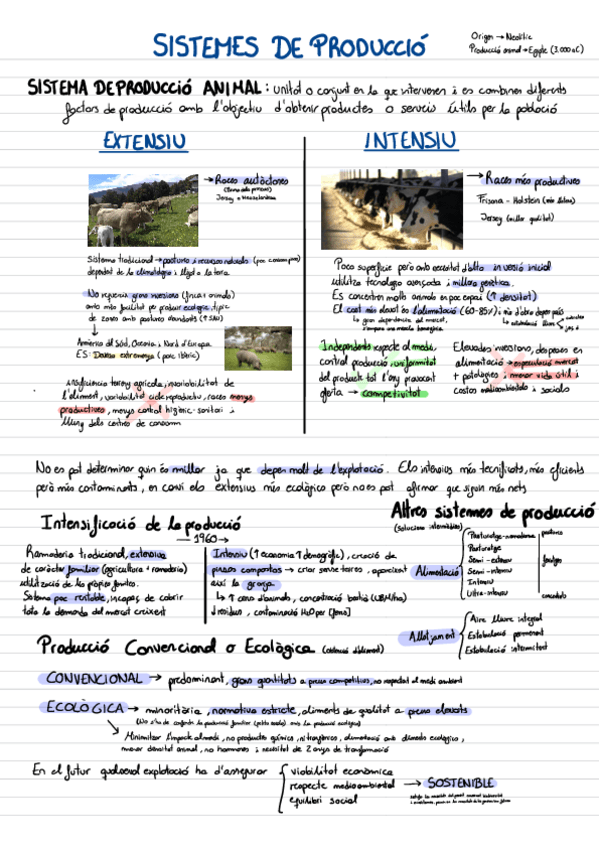 SISTEMES DE PRODUCCIÓ
Origen → Neolític
Producció animal → Egipte (3.000 aC)
SISTEMA DE PRODUCCIÓ ANIMAL: unitat o conjunt en la que intervenen i es combinen diferents
factors de producció amb l'objectiu d'obtenir productes o serveis útils per la població
EXTENSIU
→ Races autòctones
Jersey o Neozelandesa
Sistema tradicional → pastures i recursos naturals
depenent de la climatologia i lligat a la terra
No requereix grans inversions (finca + animals)
amb més facilitat per produir ecològic, típic
de zones amb pastures abundants
Amèrica del Sud, Oceania i Nord d'Europa
ES: Dehesa extremenya (porc ibèric)
Insuficiència terreny agrícola, variabilitat de
l'aliment, variabilitat cicle reproductiu, races menys
productives, menys control higiènic-sanitari i
lluny dels centres de consum
INTENSIU
→ Races més productives
Frisona - Holstein
Jersey (millor qualitat)
Poca superfície però amb necessitat d'alta inversió inicial
utilitza tecnologia avançada i millora genètica.
Es concentren molts animals en poc espai (↑ densitat)
El cost més elevat és l'alimentació (60-85%)
Independents respecte al medi,
control producció, uniformitat
del producte tot l'any provocant
oferta → competivitat
Elevades inversions, despeses en
alimentació → especulació mercat
+ patologies i menor vida útil i
costos mediambientals i socials
No es pot determinar quin és millor ja que depen molt de l'explotació. Els intensius més tecnificats, més eficients
però més contaminants, en canvi els extensius més ecològic però no es pot afirmar que siguin més nets
Intensificació de la producció
→ 1960 →
Ramaderia tradicional, extensiva
de caràcter familiar (agricultura + ramaderia)
utilització de les pròpies femtes.
Sistema poc rentable, incapaç de cobrir
tota la demanda del mercat creixent
Intensiu (↑ economia ↑ demogràfic), creació de
pinsos compostos → criar sense terres, apareixent
així la granja
↳ ↑ cara d'animals, concentració bestià (UBM/ha)
↓ residus, contaminació H2O per
Altres sistemes de producció
(Solucions intermitges)
Alimentació
Pasturatge-nomadisme
Pasturatge
Semi-extensiu
Semi-intensiu
Intensiu
Ultra-intensiu
pastures
farratges
concentrats
Allotjament
Aire lliure integral
Estabulació permanent
Estabulació intermitent
Producció Convencional o Ecològica
CONVENCIONAL → predominant, grans quantitats a preus competitius, no respectant el medi ambient
ECOLÒGICA → minoritària, normativa estricte, aliments de qualitat a preus elevats
Minimitzar l'impacte al medi, no productes químics, ni transgènics, alimentació amb aliments ecològics,
menor densitat animal, no hormones i necessitat de 2 anys de transformació
En el futur qualsevol explotació ha d'assegurar
viabilitat econòmica
respecte mediambiental
equilibri social
→ SOSTENIBLE